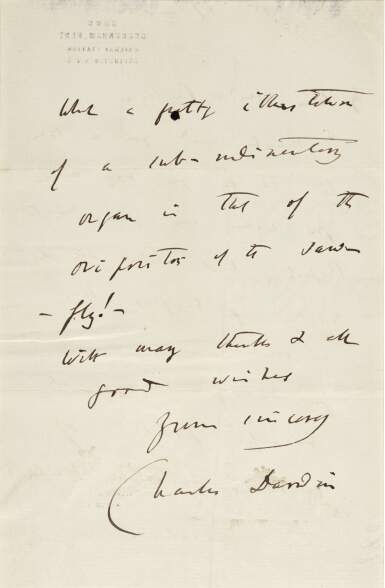 What a pretty illustration
of a sub-rudimentary
organ is that of the
ovipositor of the saw
-fly! -
With many thanks & all
good wishes
from sincerely
Charles Darwin